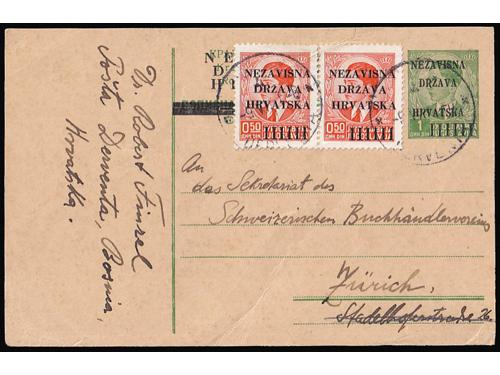 Dr. Robert Finzel
Pošta Derventa, Bosnia,
Hrvatska.
NEZAVISNA
DRŽAVA
HRVATSKA
0.50
NEZAVISNA
DRŽAVA
HRVATSKA
0.50
NEZAVISNA
DRŽAVA
HRVATSKA
1
An
das Sekretariat des
Schweizerischen Buchhändlervereins
Zürich,
Stadelhoferstrasse 26.